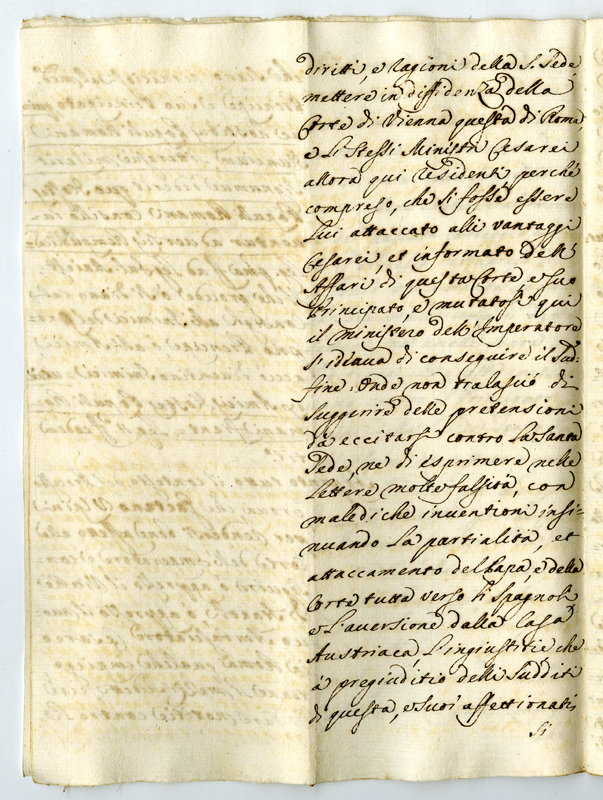 diritti, e ragioni della S. Sede,
mettere in diffidenza della
Corte di Vienna questa di Roma,
e li stessi Ministri Cesarei
allora qui residenti, perche
compreso, che si fosse essere
lui attaccato alli vantaggi
Cesarei, et informato dell'
Affari di questa Corte, e suo
Principato, e mutatosi qui
il ministero dell'Imperatore
si ideava di conseguire il sud:
fine: Onde non tralasciò di
suggerire delle pretensioni
da eccitarsi contro la Santa
Sede, ne di esprimere nelle
lettere molte falsità, con
malediche inventioni insi-
nuando la partialità, et
attaccamento del Papa, e della
Corte tutta verso li Spagnoli
e l'aversione dalla Casa
Austriaca, l'ingiustitie che
à pregiuditio delli sudditi
di questa, e suoi affettionati,
si